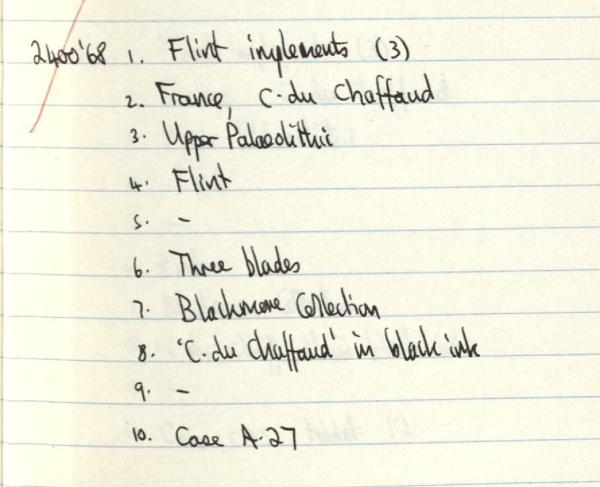 2400'68 1. Flint implements (3)
2. France, C. du Chaffaud
3. Upper Palaeolithic
4. Flint
5. -
6. Three blades
7. Blackmore Collection
8. 'C. du Chaffaud' in black ink
9. -
10. Case A.27